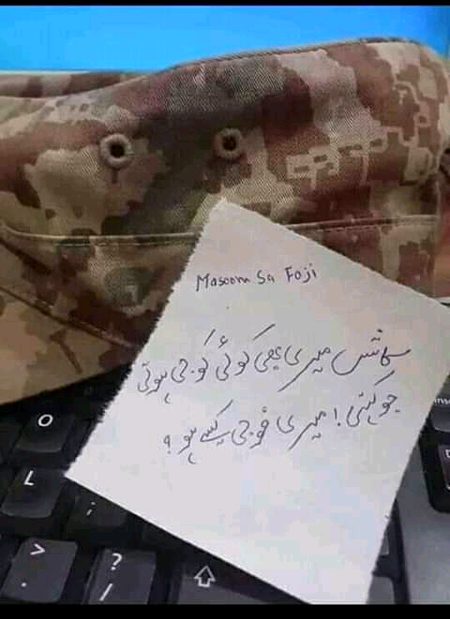 Masoom Sa Foji
کاش میری بھی کوئی گوجی ہوتی
جو کہتی! میری فوجی کیسے ہو ؟
O
L
:
;
>
.
?
/